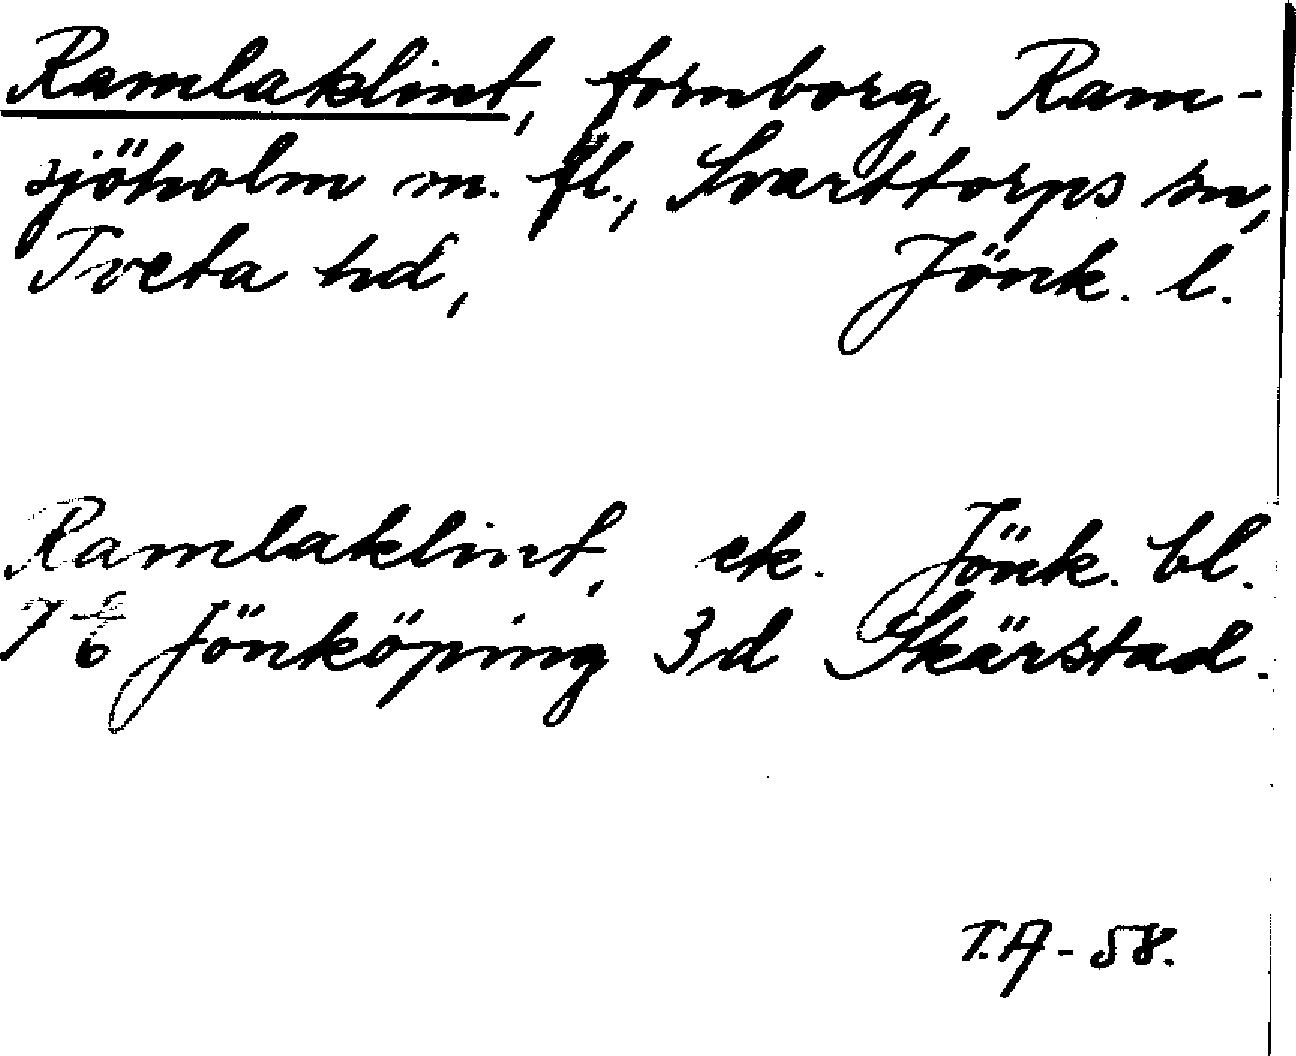 Ramlaklint, fornborg, Ram-
sjöholm m. fl., Svarttorps sn,
Tveta hd, Jönk. l.
Ramlaklint, ek. Jönk. bl.
7 E Jönköping 3d Skärstad.
T.A - 58.